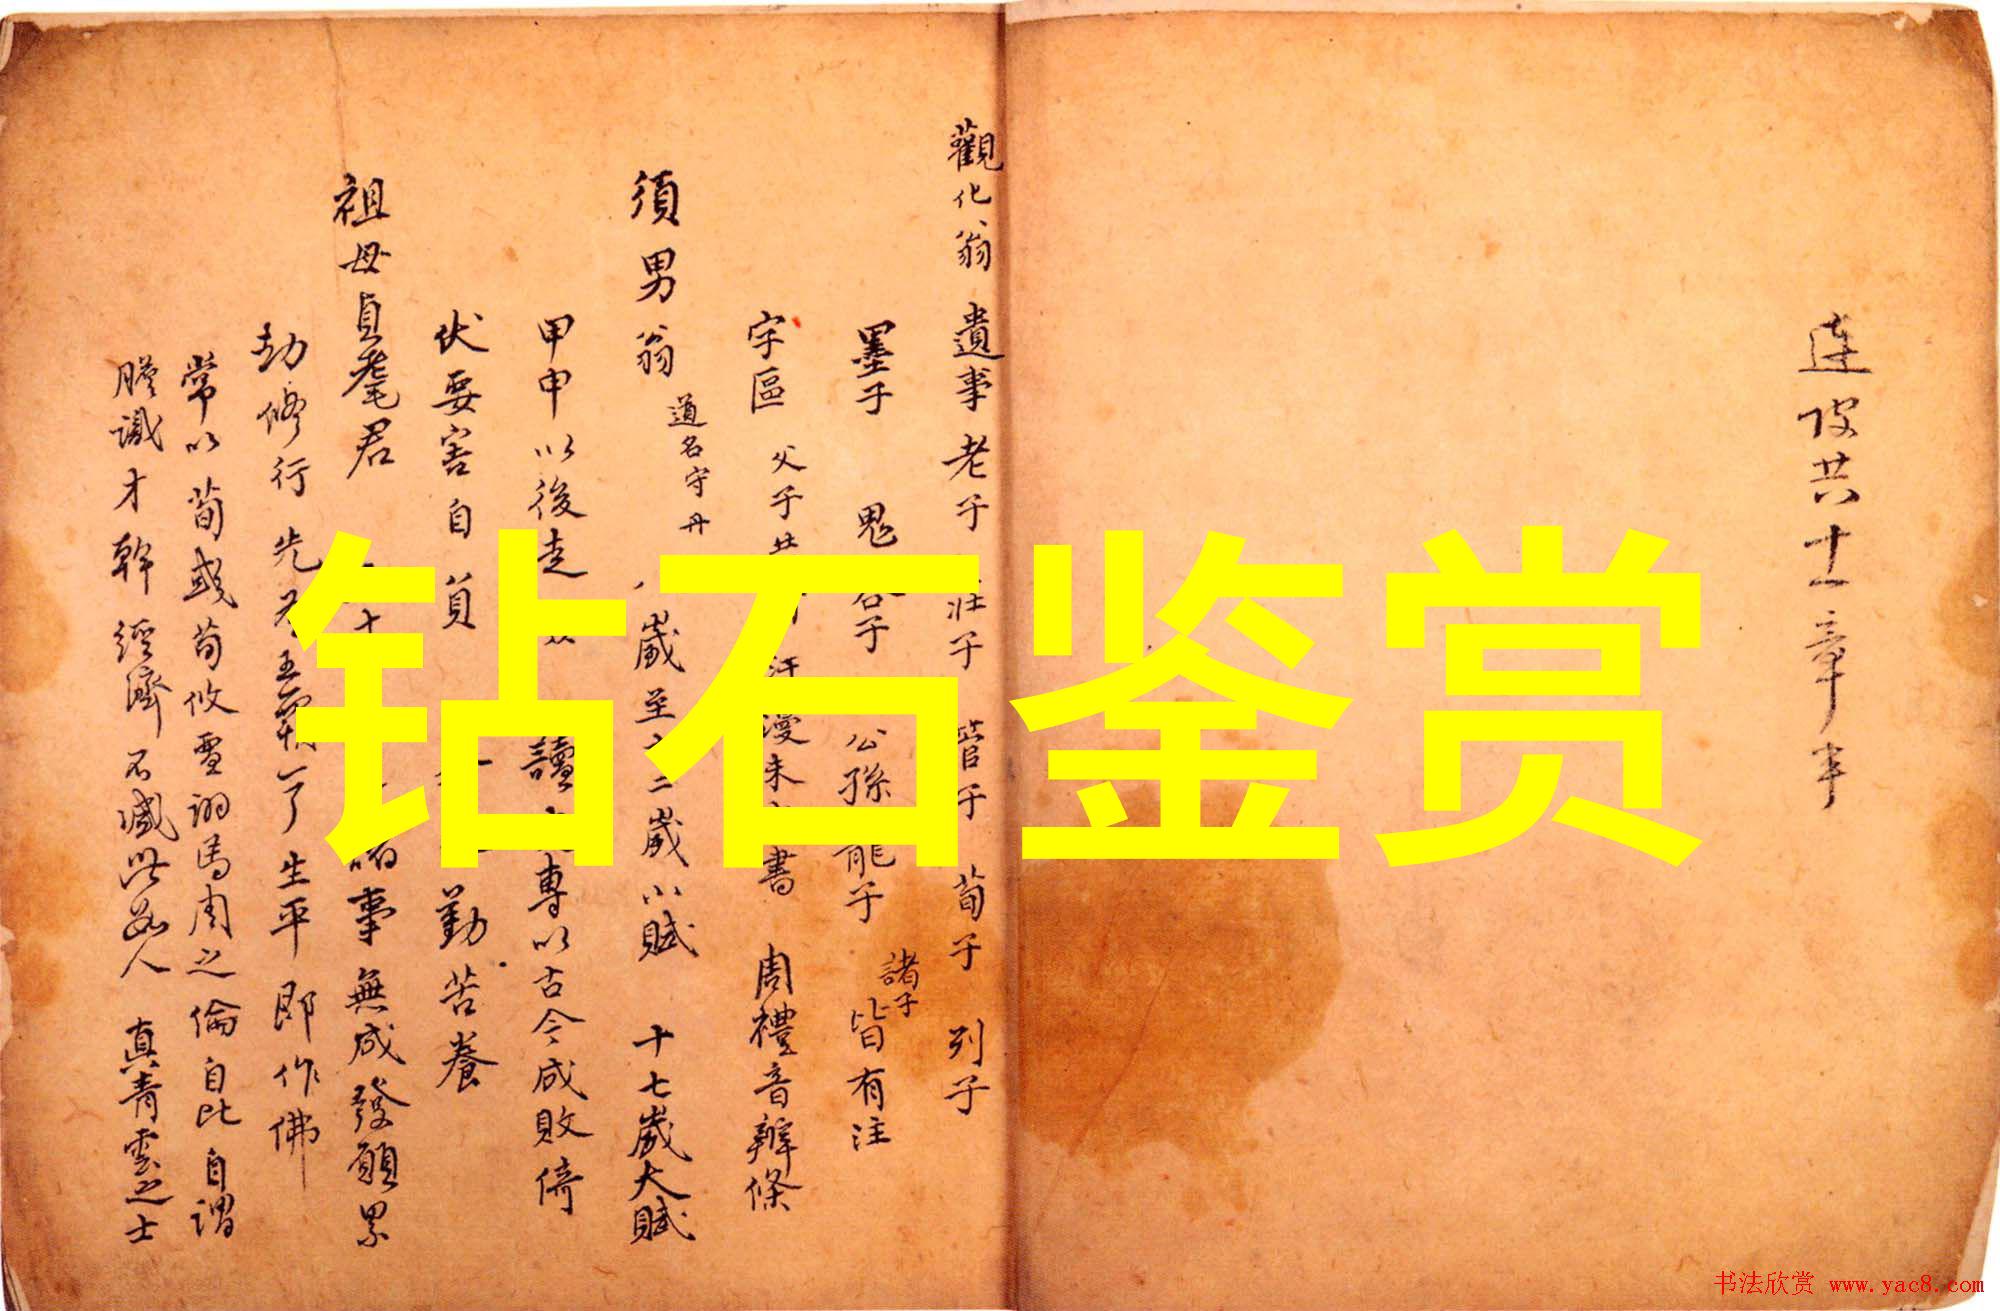 連改共十一章半
觀化翁 遺事 老子 莊子 管子 荀子 列子
墨子 鬼谷子 公孫龍子 諸子 皆有注
字區 父子 汗漫未 書 周禮音辨條
須男翁 道名守丹 八歲至十二歲小賦 十七歲大賦
甲申以後走 讀 專以古今成敗倚
伏要害自負 勤苦養
祖母貞髦君 十 諸事無成發願累
劫修行先 了生平即作佛
常以荀彧荀攸賈詡馬周之倫自比自謂
膽識才幹經濟不減此數人真青雲之士
钻石鉴赏
书法欣赏 www.yac8.com